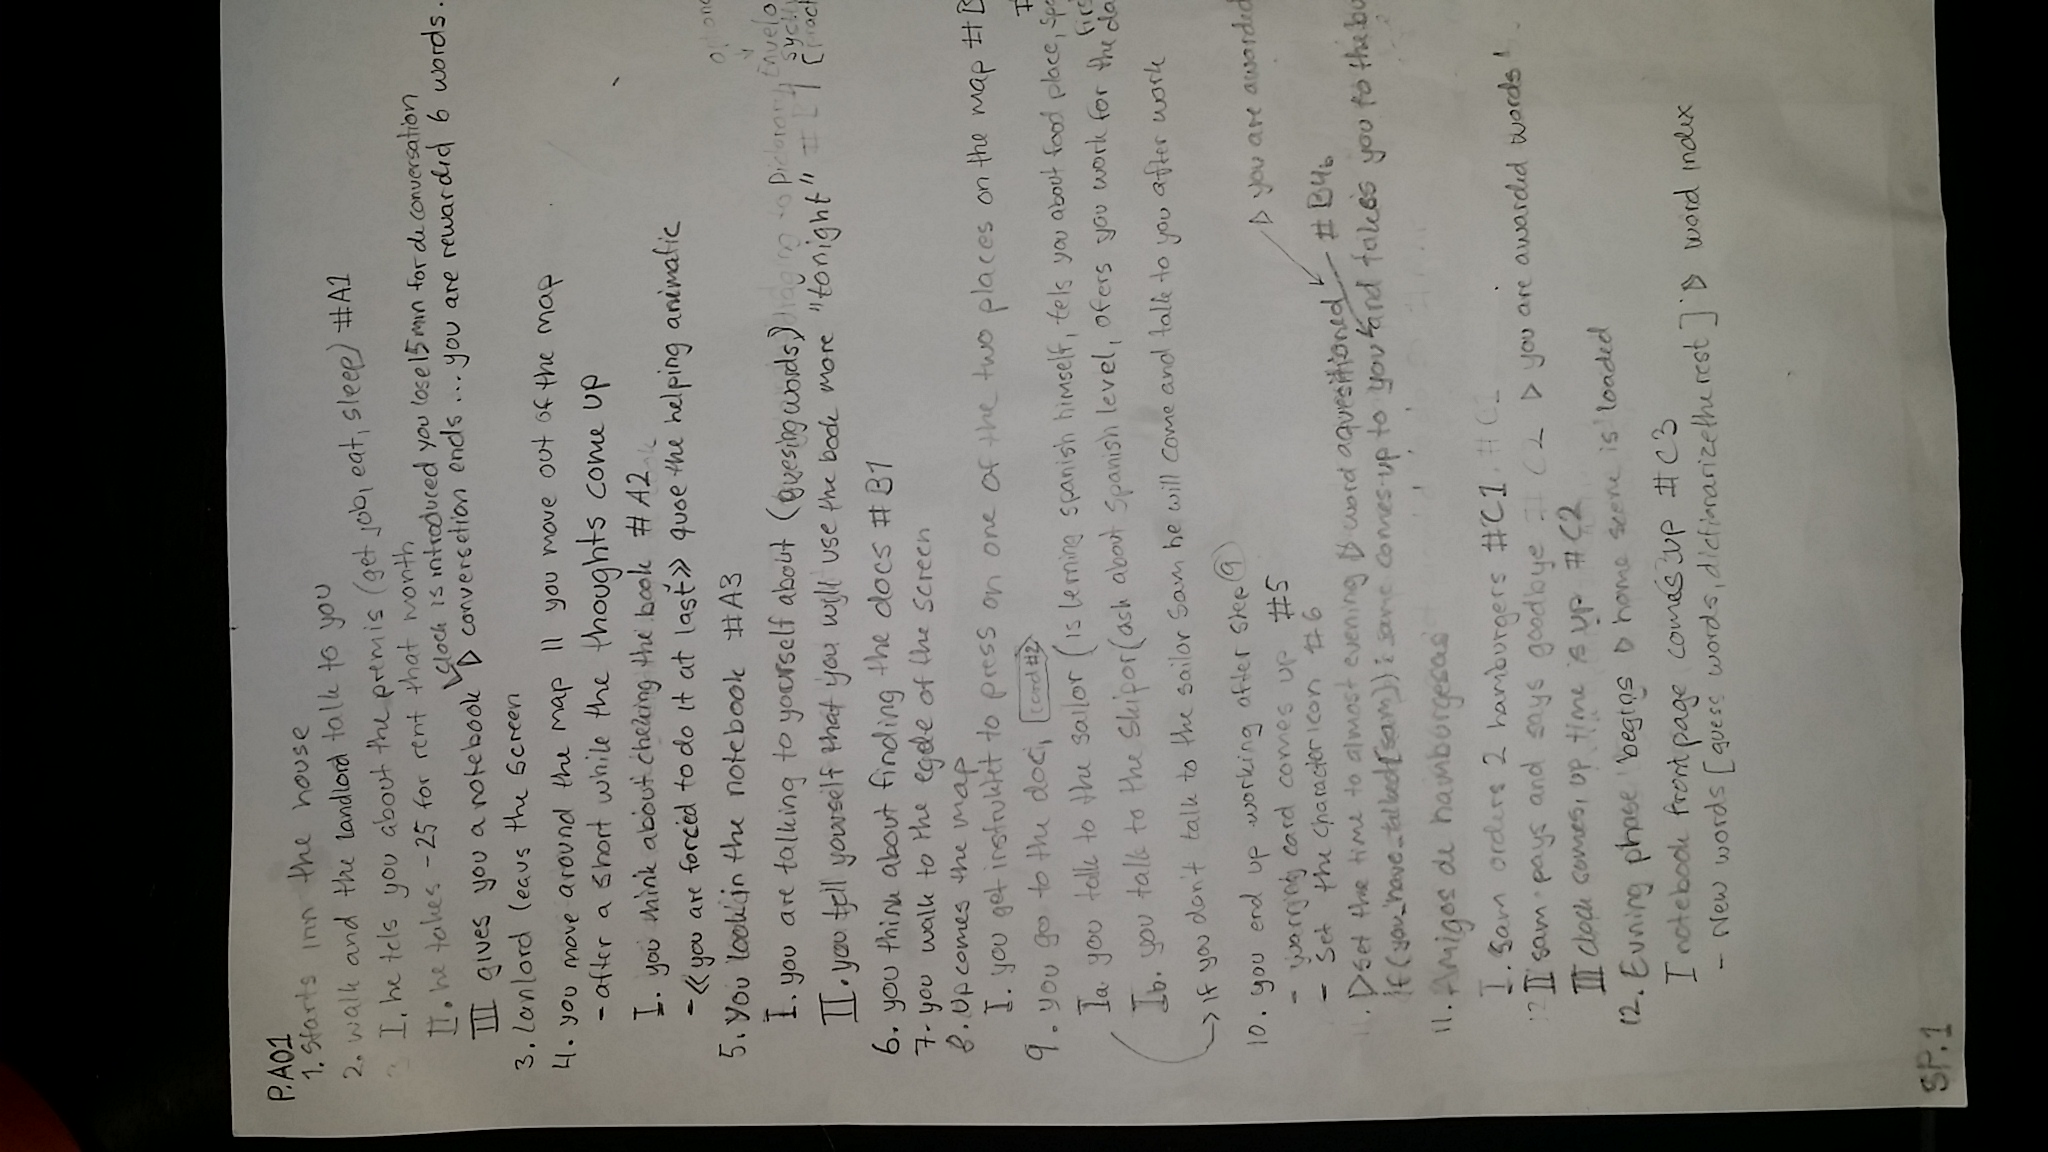 P.A01
1. Starts inn the house
2. walk and the landlord talk to you
I. he tels you about the premis (get job, eat, sleep) #A1
II. he takes -25 for rent that month
clock is introduced you lose 15 min for de conversation
III gives you a notebook ▷ conversetion ends ... you are rewarded 6 words.
3. Lanlord leavs the screen
4. you move around the map || you move out of the map
- after a short while the thoughts come up
I. you think about cheking the book #A2
- «you are forced to do it at last» quoe the helping animatic
5. You look in the notebook #A3
I. you are talking to yourself about (guesing words,)
II. you tell yourself that you will use the book more "tonight"
6. you think about finding the docs #B1
7. you walk to the egde of the screen
8. Up comes the map
I. you get instruktet to press on one of the two places on the map #B
9. you go to the doc, card #2
Ia you talk to the sailor (is lerning spanish himself, tels you about food place, Spa
Ib. you talk to the Skipor (ask about Spanish level, ofers you work for the da
firs
→ if you don't talk to the sailor Sam he will come and talk to you after work
10. you end up working after step 9
▷ you are awarded
- warrning card comes up #5
- Set the character icon #6
. ▷ Set the time to almost evening ▷ word aquesitioned #B4b
if (you_have_talked[sam]) : same comes up to you and takes you to the bu
11. Amigos de hamburgesas
I. Sam orders 2 hamburgers #C1
II sam pays and says goodbye #C2 ▷ you are awarded words!
III clock comes, up time is up #C2
12. Evning phase begins ▷ home scene is loaded
I notebook frontpage comes up #C3
- New words [guess words, dictionarize the rest] ▷ word index
SP.1